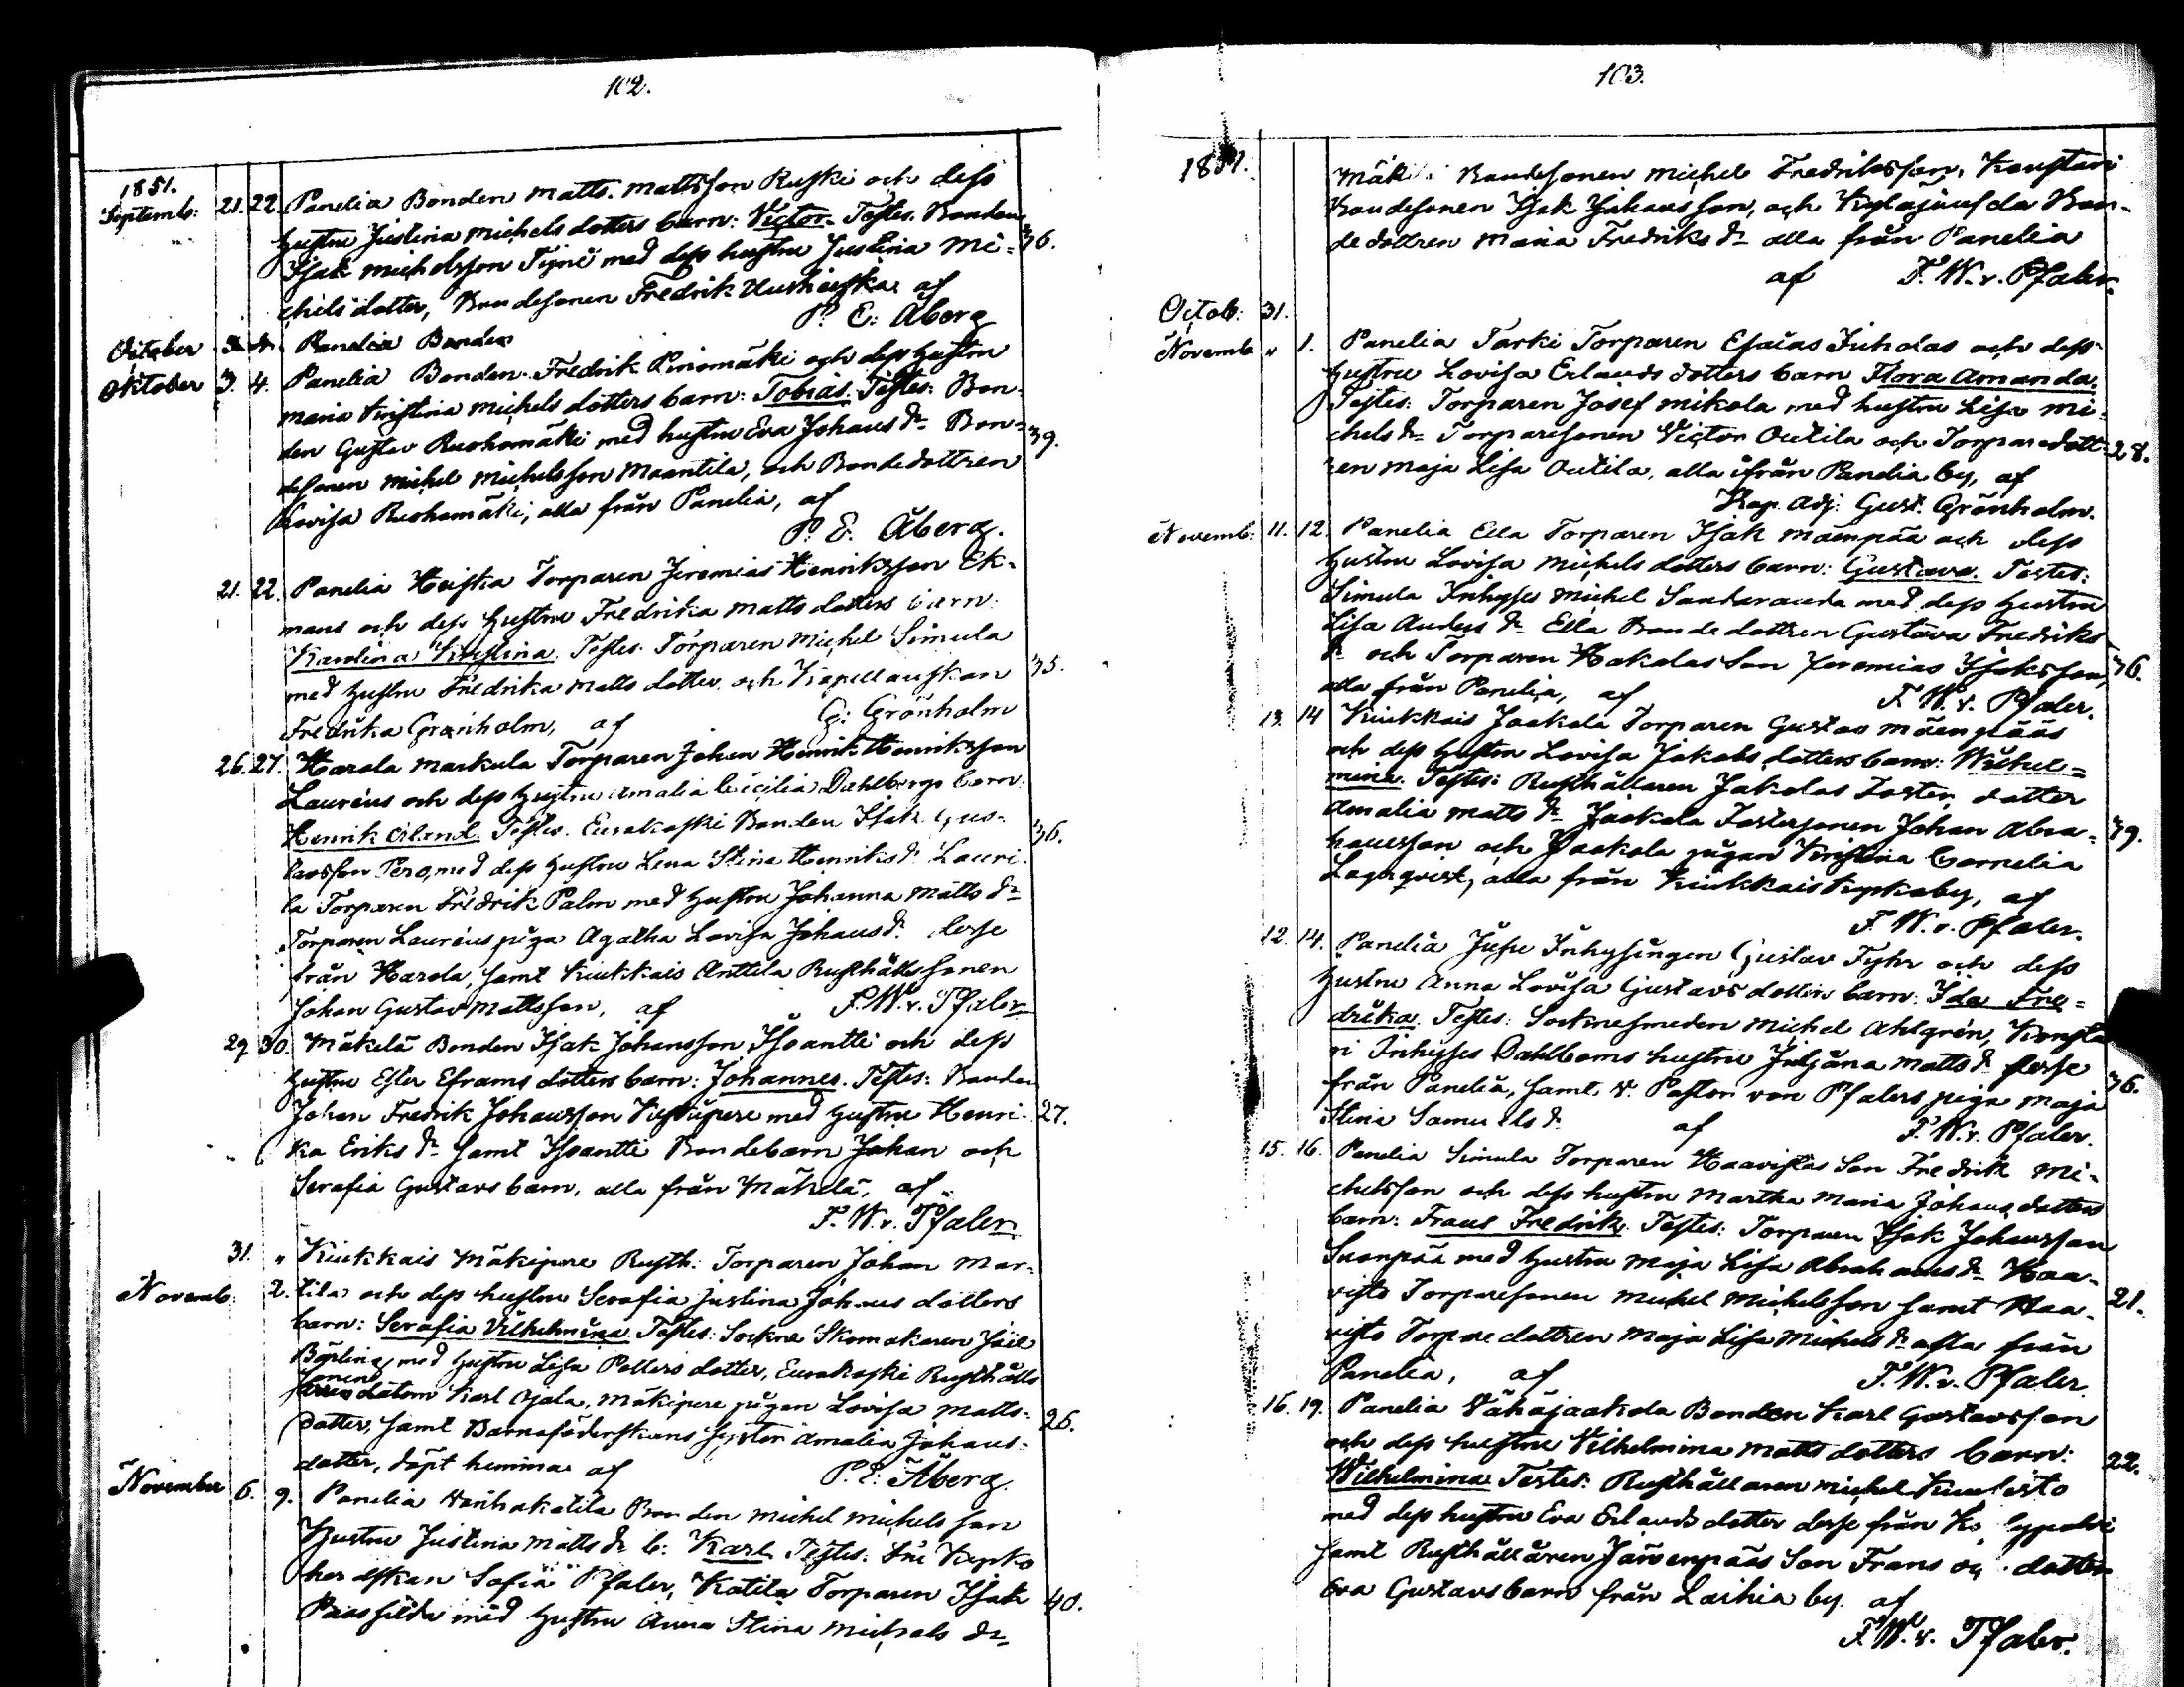 102.
1851.
Septemb: 21. 22. Panelia Bonden Matts Mattsson Ruski och dess
hustru Justina Michelsdotters barn: Victor. Testes. Bonden
Isak Michelsson Tyni med dess hustru Justina Mi= 36.
chelsdotter, Bondesonen Fredrik af
P. E. Åberg
October Panelia Bonden
Oktober 3. 4. Panelia Bonden Fredrik Pinomäki och dess hustru
Maria Kristina Michels dotters barn: Tobias. Testes: Bon-
den Gustav Ruohomäki med hustru Eva Johans dr Bon= 39.
desonen Michel Michelsson Maantila, och Bondedottren
Lovisa Ruohomäki, alla från Panelia, af
P. E. Åberg.
21. 22. Panelia Heiska Torparen Jeremias Henriksson Ek-
mans och dess hustru Fredrika Matts dotters barn:
Karolina Kristina. Testes. Torparen Michel Simula
med hustru Fredrika Matts dotter och Kapellanskan 35.
Fredrika Grönholm, af G. Grönholm
26. 27. Harola Markula Torparen Johan Henrik Henriksson
Lauréus och dess hustru Amalia Cecilia Dahlbergs barn:
Henrik Testes. Eurakoski Bonden Isak Gus- 36.
tavsson Pero, med dess hustru Lena Stina Henriks dr Lauri-
la Torparen Fredrik Palm med hustru Johanna Matts dr
Torparen Lauréus piga Agatha Lovisa Johans dr desse
från Harola, samt Kiukkais Anttila Rusthålls sonen
Johan Gustav Mattsson, af F. W. v. Pfaler
29. 30. Mäkelä Bonden Isak Johansson Isoantti och dess
hustru Ester Eframs dotters barn: Johannes. Testes: Bonden
Johan Fredrik Johansson med hustru Henri- 27.
ka Eriks dr samt Isoantti Bondebarn Johan och
Serafia Gustavs barn, alla från Mäkelä, af
F. W. v. Pfaler
31. „ Kiukkais Mäkipere Rusth: Torparen Johan Mar-
Novemb: 2. tila och dess hustru Serafia Justina Johans dotters
barn: Serafia Vilhelmina. Testes: Sockne Skomakaren Joel
med hustru Lisa Petters dotter, Eurakoski Rusthålls
sonen Karl Ojala, Mäkipere pigan Lovisa Matts- 26.
dotter, samt Barnaföderskans syster Amalia Johans-
dotter, döpt hemma af P. E. Åberg.
November 6. 9. Panelia Vanhakatila Bonden Michel Michelsson
Hustru Justina Matts dr b: Karl. Testes:
Sofia Pfaler, Katila Torparen Isak 40.
med hustru Anna Stina Michels dr
103.
1851.
Mäki Bondesonen Michel Fredriksson,
Bondesonen Isak Johansson, och Kylajunsola Bon-
de dottren Maria Fredriks dr alla från Panelia
af F. W. v. Pfaler
Octob: 31.
Novemb „ 1. Panelia Tarki Torparen Esaias Juholas och dess
hustru Lovisa Erlands dotters barn Flora Amanda.
Testes: Torparen Josef Mikola med hustru Lisa Mi-
chels dr Torparesonen Victor Outila och Torparedott- 28.
ren Maja Lisa Outila, alla ifrån Panelia by, af
Kap. Adj: Gust. Grönholm.
Novemb: 11. 12. Panelia Ella Torparen Isak Mäenpää och dess
hustru Lovisa Michels dotters barn: Gustava. Testes:
Simula Inhyses Michel Santaranda med dess hustru
Lisa Anders dr Ella Bondedottren Gustava Fredriks
dr och Torparen Hakalas Son Jeremias Isaksson, 36.
alla från Panelia, af F. W. v. Pfaler.
13. 14 Kiukkais Jaakola Torparen Gustav Mäenpääs
och dess hustru Lovisa Jakobs dotters barn: Wilhel=
mina. Testes: Rusthållaren Jakolas Foster dotter
Amalia Matts dr Jaakola Fostersonen Johan Abra- 39.
hamsson och Jaakola pigan Kristina Cornelia
Lagrqvist, alla från Kiukkais Kyrkoby, af
F. W. v. Pfaler.
12. 14. Panelia Inhysingen Gustav Fyhr och dess
hustru Anna Lovisa Gustavs dotters barn: Ida Fre=
drika. Testes: Socknesmeden Michel Ahlgrén,
Inhyses Dahlboms hustru Juljana Matts dr desse 36.
från Panelia, samt v. Pastor von Pfalers piga Maja
Stina Samuels dr af F. W. v. Pfaler.
15. 16. Panelia Simula Torparen Haavistos Son Fredrik Mi-
chelsson och dess hustru Martha Maria Johans dotters
barn: Frans Fredrik. Testes: Torparen Isak Johansson
Suonpää med hustru Maja Lisa Abrahams dr Haa-
visto Torparesonen Michel Michelsson samt Haa- 21.
visto Torparedottren Maja Lisa Michels dr alla från
Panelia, af F. W. v. Pfaler.
16. 19. Panelia Vähäjaakola Bonden Karl Gustavsson
och dess hustru Vilhelmina Matts dotters barn: 22.
Wilhelmina. Testes: Rusthållaren Michel
med dess hustru Eva Erlands dotter desse från
samt Rusthållaren Järvenpääs Son Frans och dotter
Eva Gustavs barn från Laihia by. af
F. W. v. Pfaler.